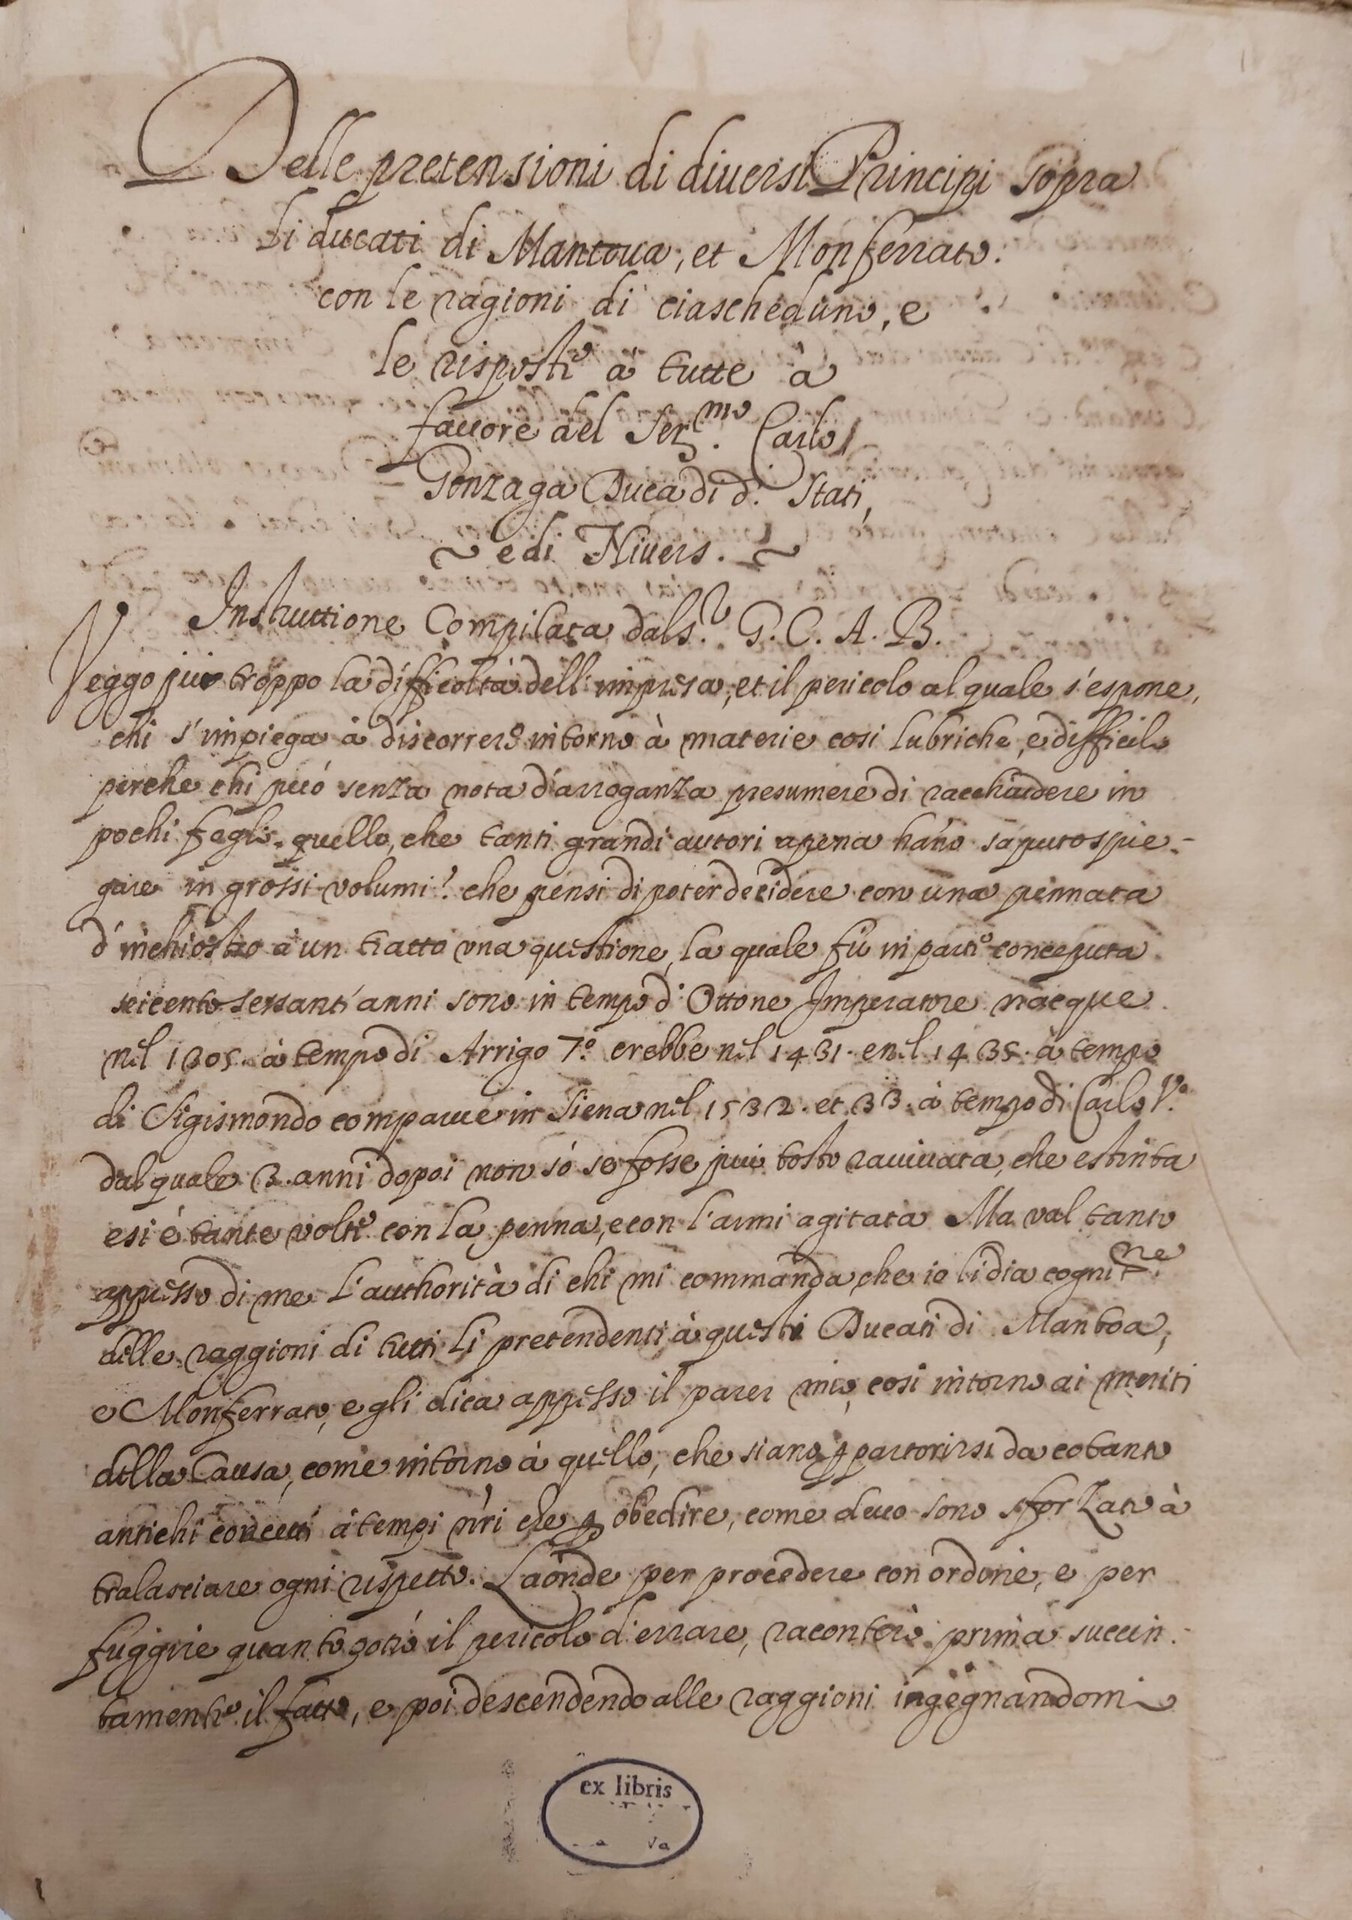 Delle pretensioni di diversi Principi sopra
li ducati di Mantoua, et Monferrato.
con le ragioni di ciascheduno, e
le risposte à tutte à
fauore del Ser.mo Carlo
Gonzaga Duca di d. Stati,
~ e di Niuers. ~
Instruttione Compilata dal S.r G. C. A. B.
Veggo pur troppo la difficoltà dell'impresa, et il pericolo al quale s'espone,
chi s'impiega à discorrere intorno à materie cosi lubriche, e difficile
perche chi può senza nota d'arroganza presumere di racchiudere in
pochi fogli quello, che tanti grandi autori apena hano saputo spie-
gare in grossi volumi? che pensi di poter decidere con una pennata
d'inchiostro à un tratto una questione, la quale fù in parte conceputa
seicento sessant'anni sono in tempo d'Ottone Imperatore nacque
nel 1305. à tempo di Arrigo 7.o crebbe nel 1431. e nel 1435. à tempo
di Sigismondo comparue in Siena nel 1532. et 33. à tempo di Carlo V.o
dal quale 3. anni dopoi non sò se fosse piu tosto rauiuata, che estinta
e si è tante volte con la penna, e con l'armi agitata Ma val tanto
appresso di me l'authorità di chi mi commanda che io li dia cognit.ne
delle raggioni di tutti li pretendenti à questi Ducati di Mantoa,
e Monferrato, e gli dica appresso il parer mio, cosi intorno ai meriti
della Causa, come intorno à quello, che siano p partorirsi da cotanto
antichi à tempi nri che p obedire, come deuo sono sforzato à
tralasciare ogni rispetto. Laonde per procedere con ordine, e per
fuggire quanto potrò il pericolo d'errare, raconterò prima succin-
tamente il fatto, e poi descendendo alle raggioni ingegnandomi
ex libris